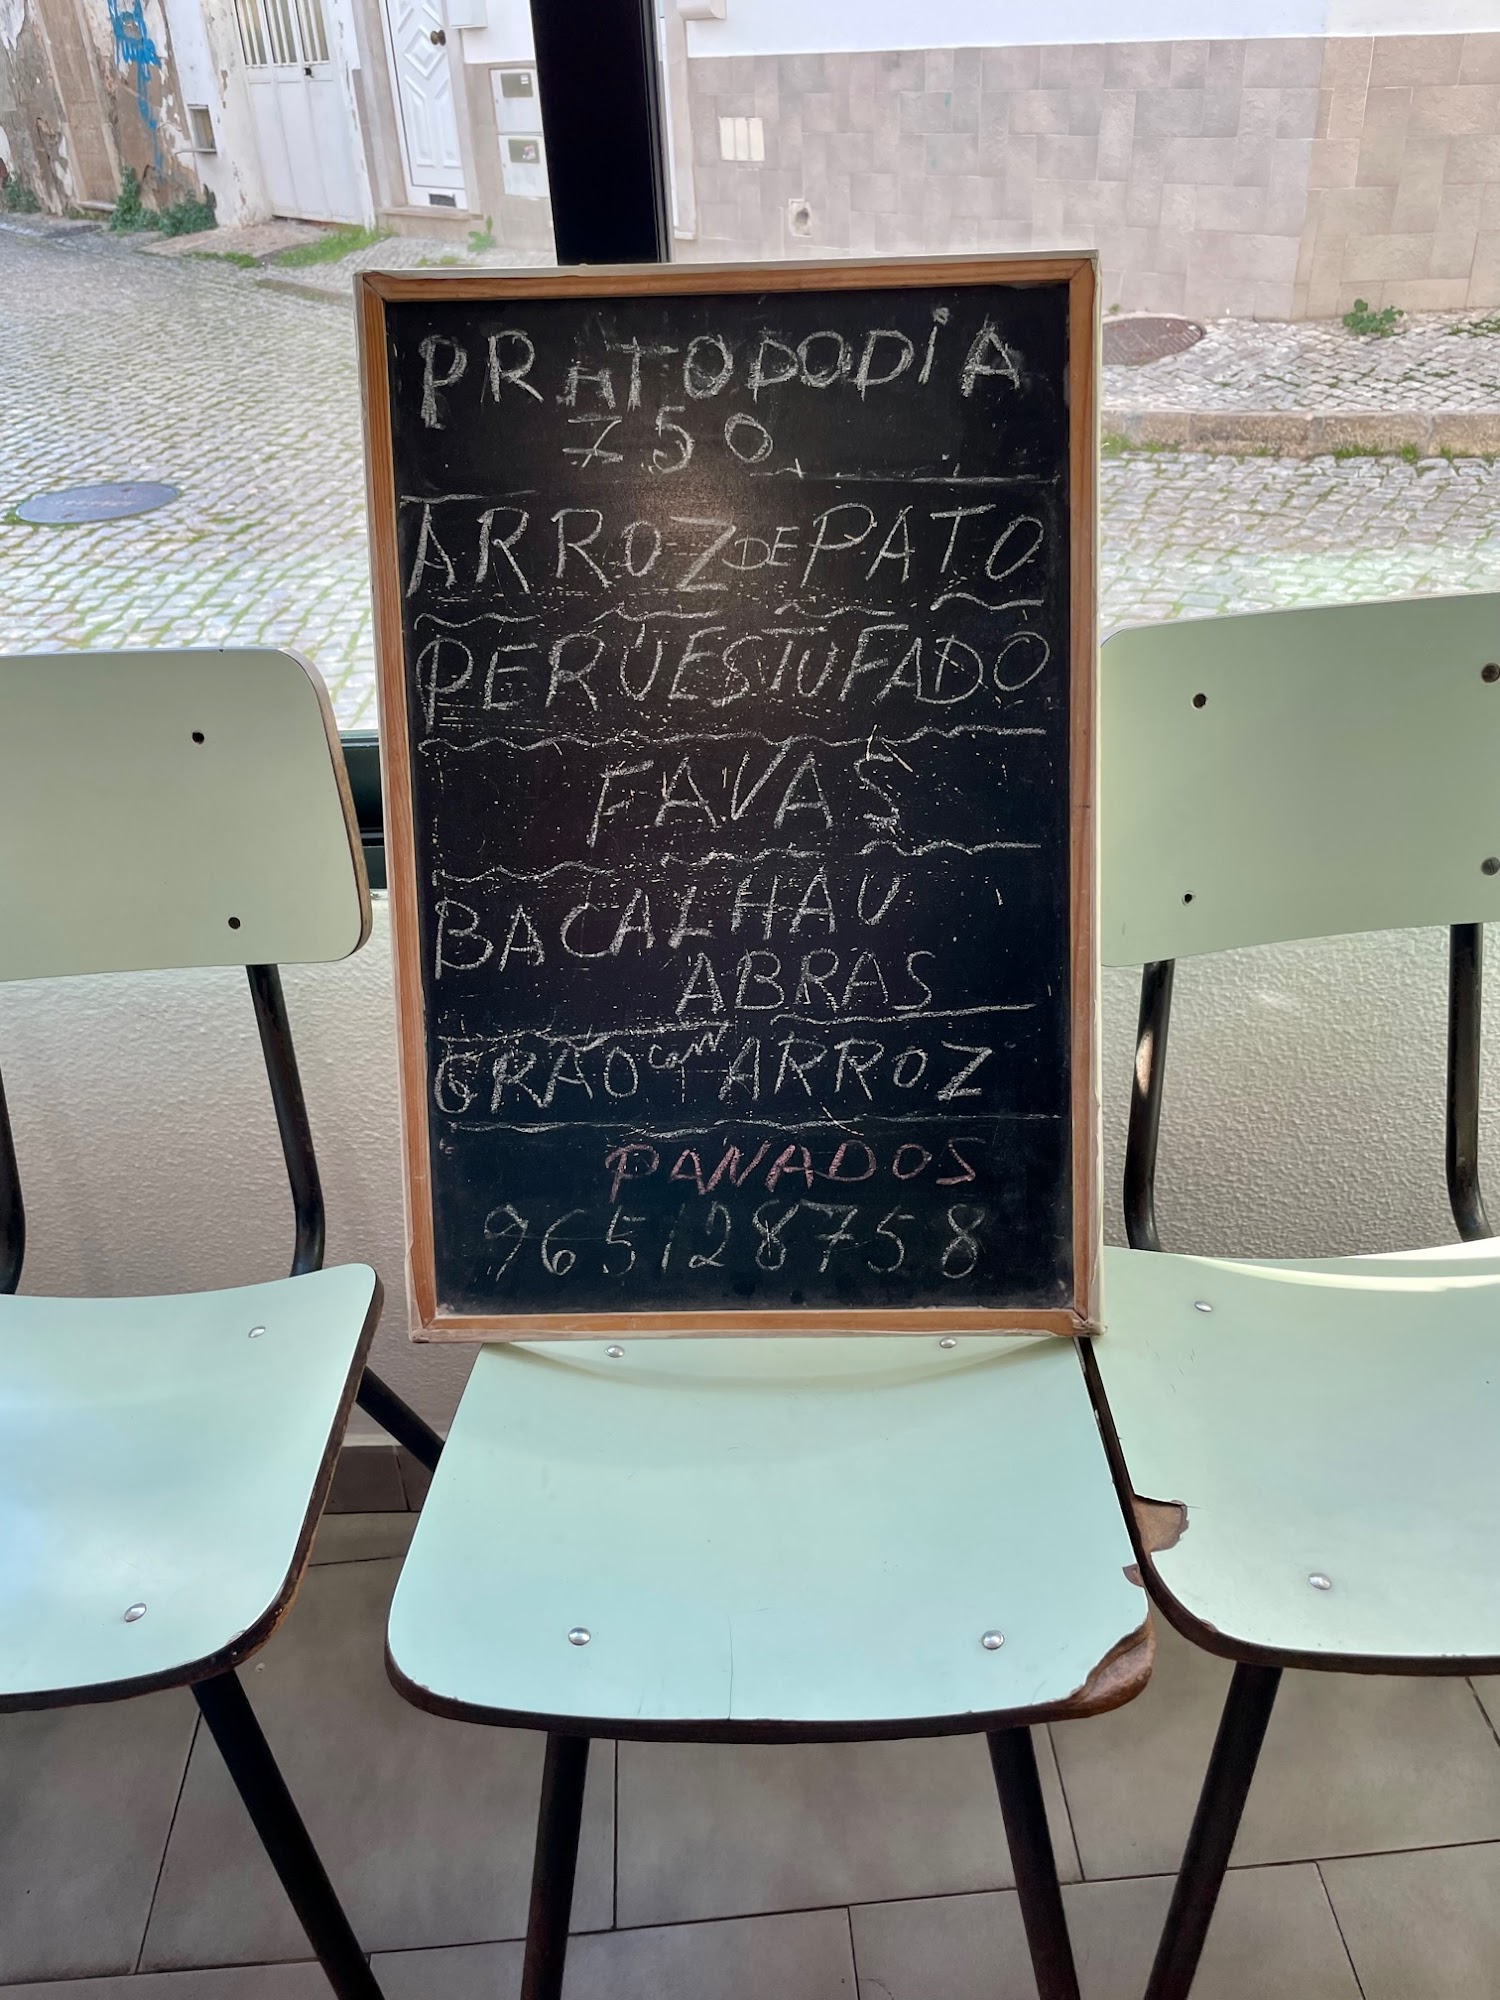 PRATO DO DIA
750
ARROZ DE PATO
PERU ESTUFADO
FAVAS
BACALHAU
ABRAS
GRAO COM ARROZ
PANADOS
965128758